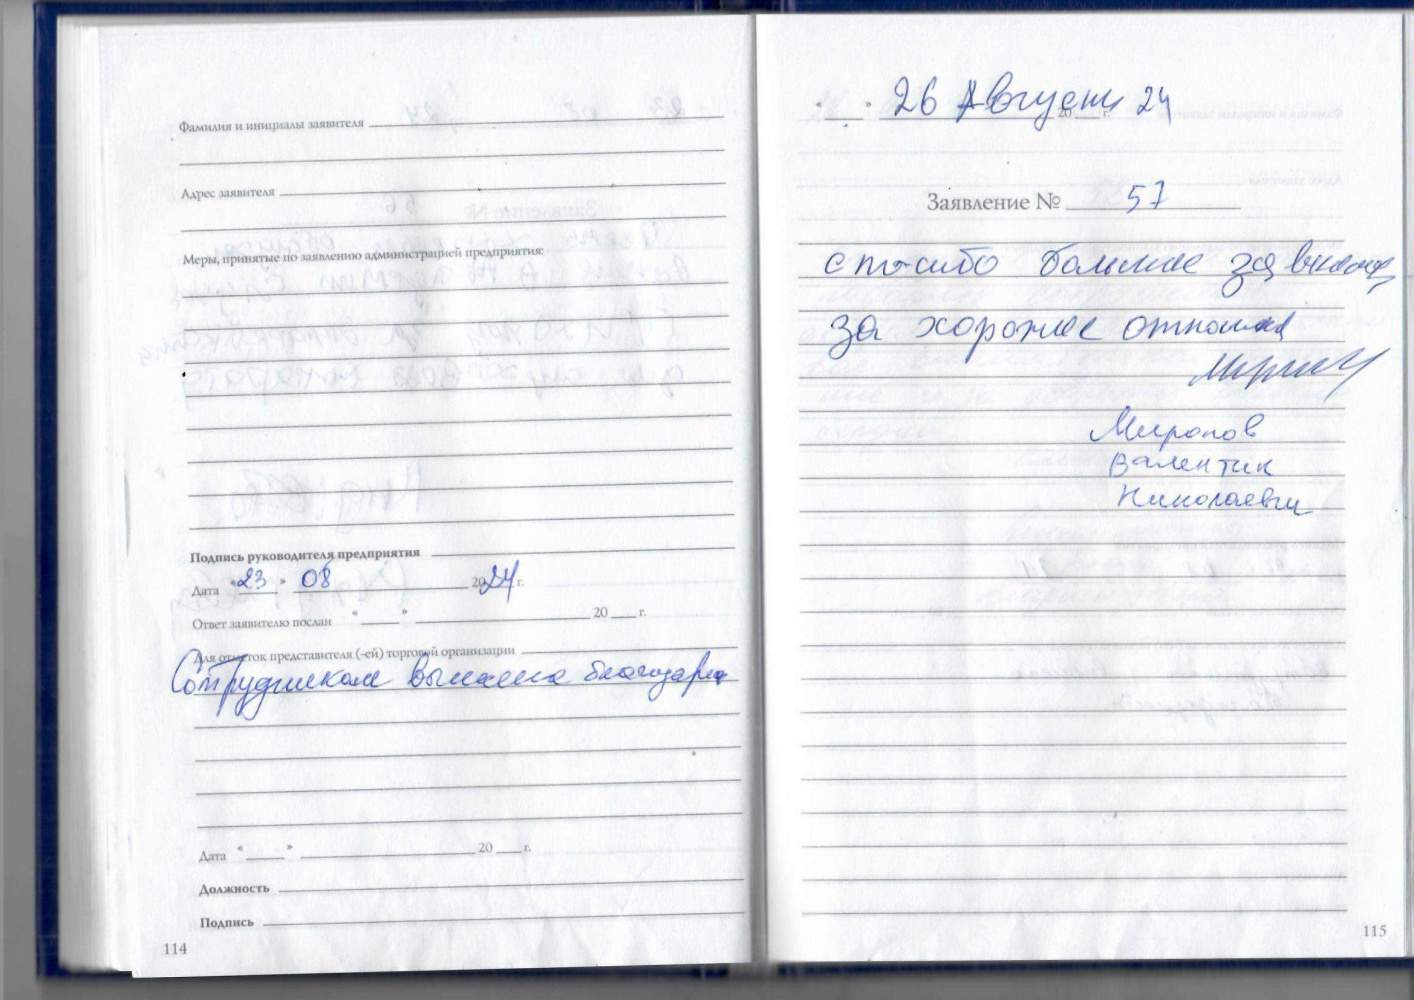 Фамилия и инициалы заявителя
Адрес заявителя
Меры, принятые по заявлению администрацией предприятия:
Подпись руководителя предприятия
Дата “23” 08 2024 г.
Ответ заявителю послан “ ” 20 г.
Для отметок представителя (-ей) торговой организации
Сотрудникам вынесена
Дата “ ” 20 г.
Должность
Подпись
114
“ ” 26 Августа 20 г. 24
Заявление № 57
спасибо большое за
за хорошее
Миронов
Валентин
Николаевич
115